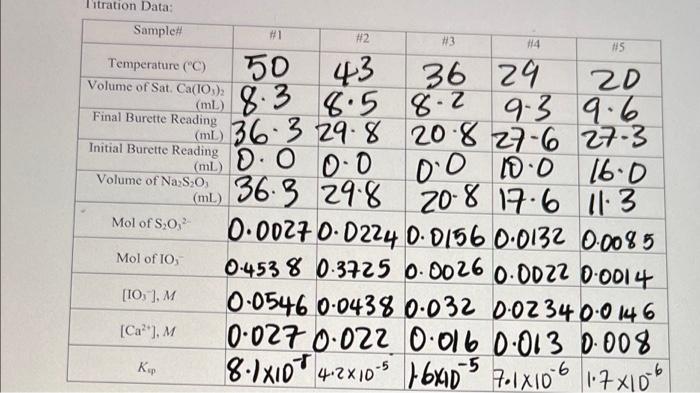 Titration Data:
Sample# #1 #2 #3 #4 #5
Temperature (°C) 50 43 36 29 20
Volume of Sat. Ca(IO₃)₂ (mL) 8.3 8.5 8.2 9.3 9.6
Final Burette Reading (mL) 36.3 29.8 20.8 27.6 27.3
Initial Burette Reading (mL) 0.0 0.0 0.0 10.0 16.0
Volume of Na₂S₂O₃ (mL) 36.3 29.8 20.8 17.6 11.3
Mol of S₂O₃²⁻ 0.0027 0.0224 0.0156 0.0132 0.0085
Mol of IO₃⁻ 0.4538 0.3725 0.0026 0.0022 0.0014
[IO₃⁻], M 0.0546 0.0438 0.032 0.0234 0.0146
[Ca²⁺], M 0.027 0.022 0.016 0.013 0.008
Ksp 8.1×10 4.2×10⁻⁵ 1.6×10⁻⁵ 7.1×10⁻⁶ 1.7×10⁻⁶